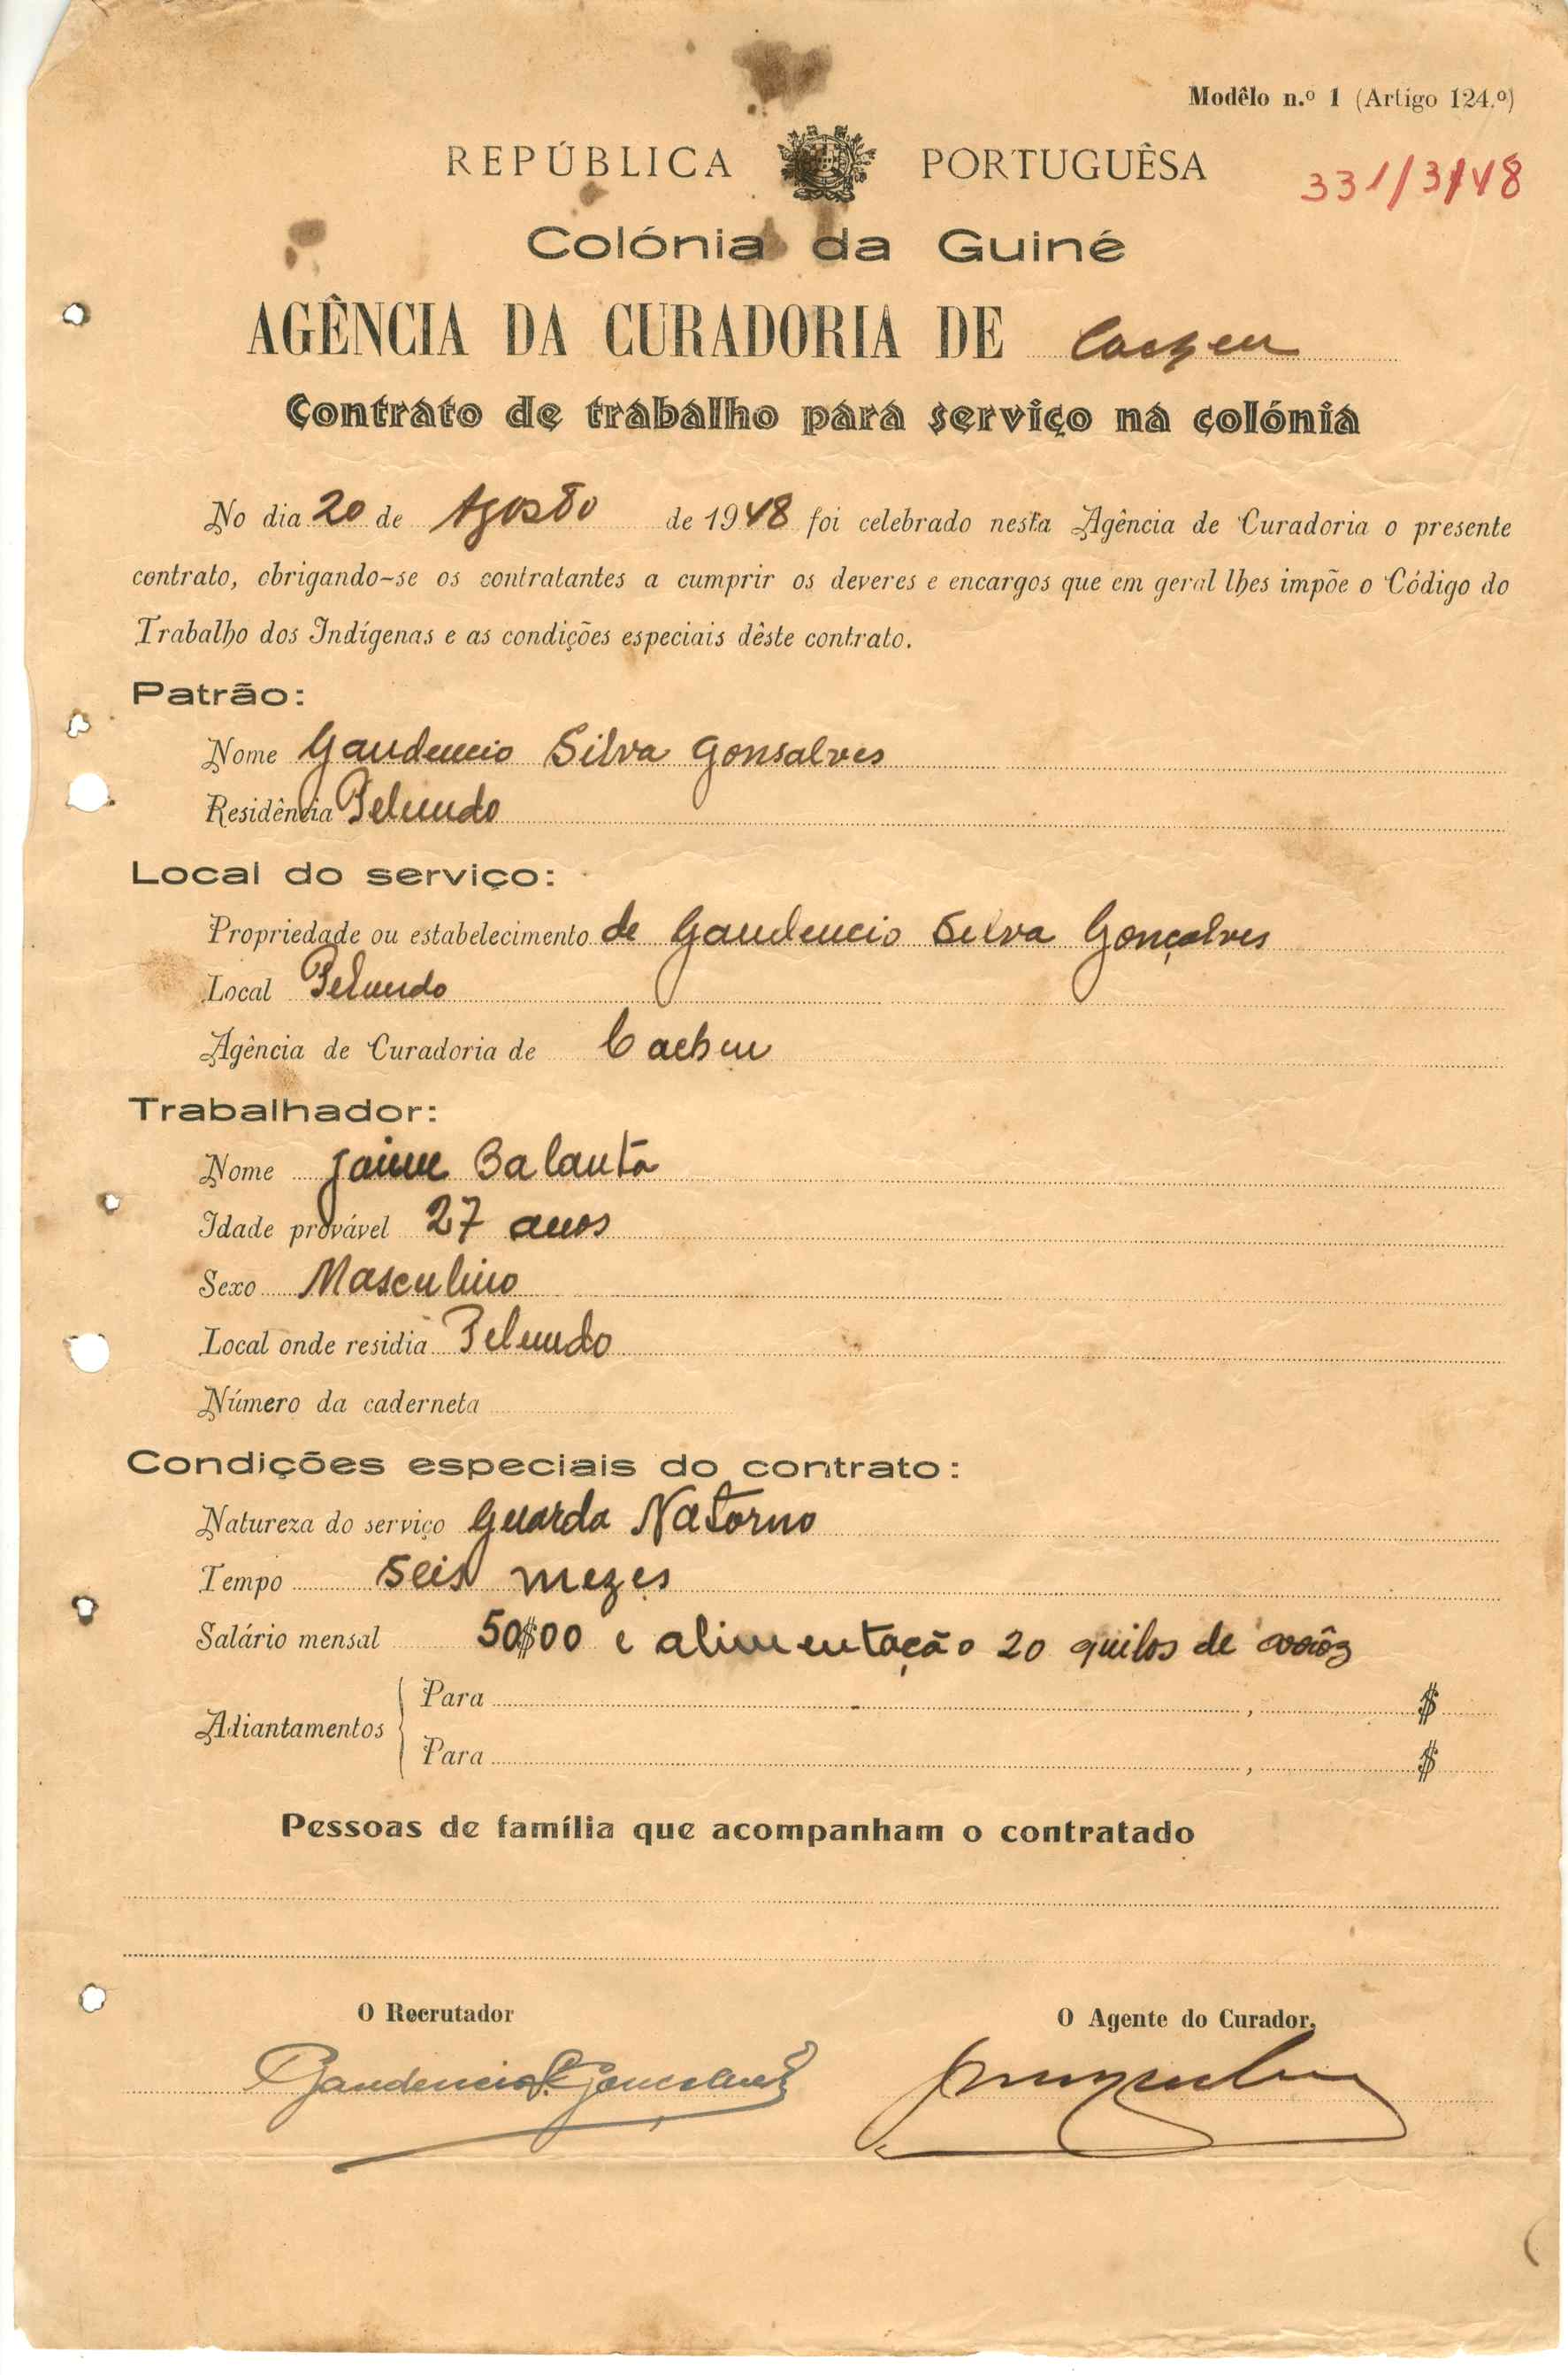 Modêlo n.º 1 (Artigo 124.º)
REPÚBLICA PORTUGUÊSA
331/3/48
Colónia da Guiné
AGÊNCIA DA CURADORIA DE Cacheu
Contrato de trabalho para serviço na colónia
No dia 20 de Agosto de 1948 foi celebrado nesta Agência de Curadoria o presente
contrato, obrigando-se os contratantes a cumprir os deveres e encargos que em geral lhes impõe o Código do
Trabalho dos Indígenas e as condições especiais dêste contrato.
Patrão:
Nome Gaudencio Silva Gonsalves
Residência Pelundo
Local do serviço:
Propriedade ou estabelecimento de Gaudencio Silva Gonçalves
Local Pelundo
Agência de Curadoria de Cacheu
Trabalhador:
Nome Jaime Balanta
Idade provável 27 anos
Sexo Masculino
Local onde residia Pelundo
Número da caderneta
Condições especiais do contrato:
Natureza do serviço Guarda Natorno
Tempo seis mezes
Salário mensal 50$00 e alimentação 20 quilos de arrôz
Adiantamentos
Para , $
Para , $
Pessoas de família que acompanham o contratado
O Recrutador
O Agente do Curador,
Gaudencio S. Goncalves